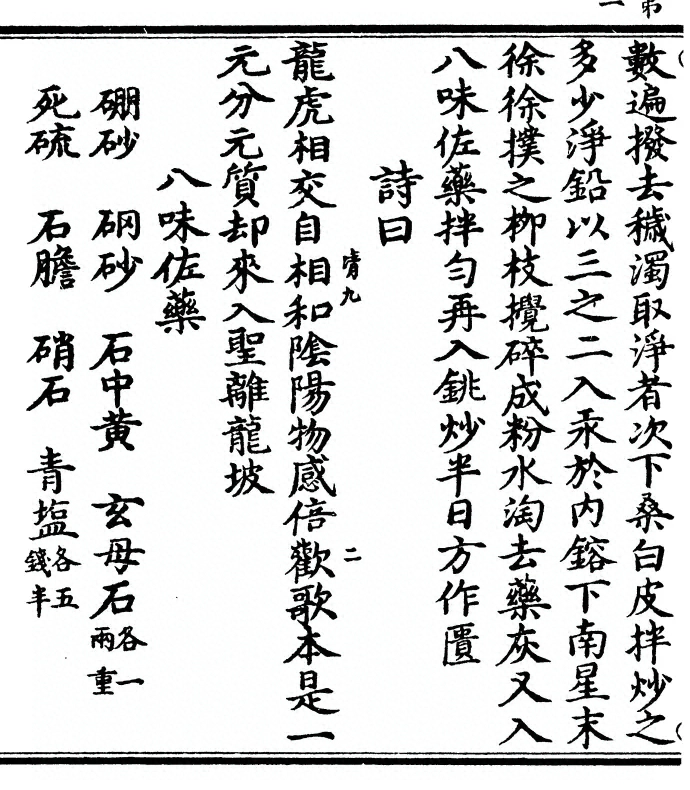 數遍撥去穢濁取淨者次下桑白皮拌炒之
多少淨鉛以三之二入汞於內鎔下南星末
徐徐摸之柳枝攪碎成粉水淘去藥灰又入
八味佐藥拌勻再入銚炒半日方作匱
詩曰
龍虎相交自相和陰陽物感倍歡歌本是一
元分元質却來入聖離龍坡
八味佐藥
硼砂 硇砂 石中黄 玄母石各一兩重
死硫 石膽 硝石 青塩各五錢半
青九
二